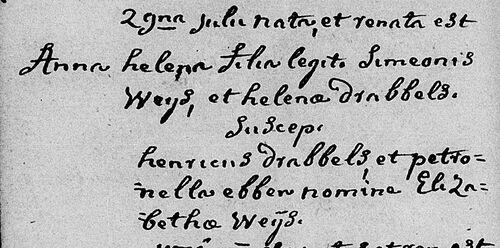 29na Julii nata, et renata est
Anna helena Filia legit. Simeonis
Weijs, et helenæ drabbels.
Suscep.
henricus drabbels, et petro=
=nella ebben nomine Eliza=
=bethæ Weijs.